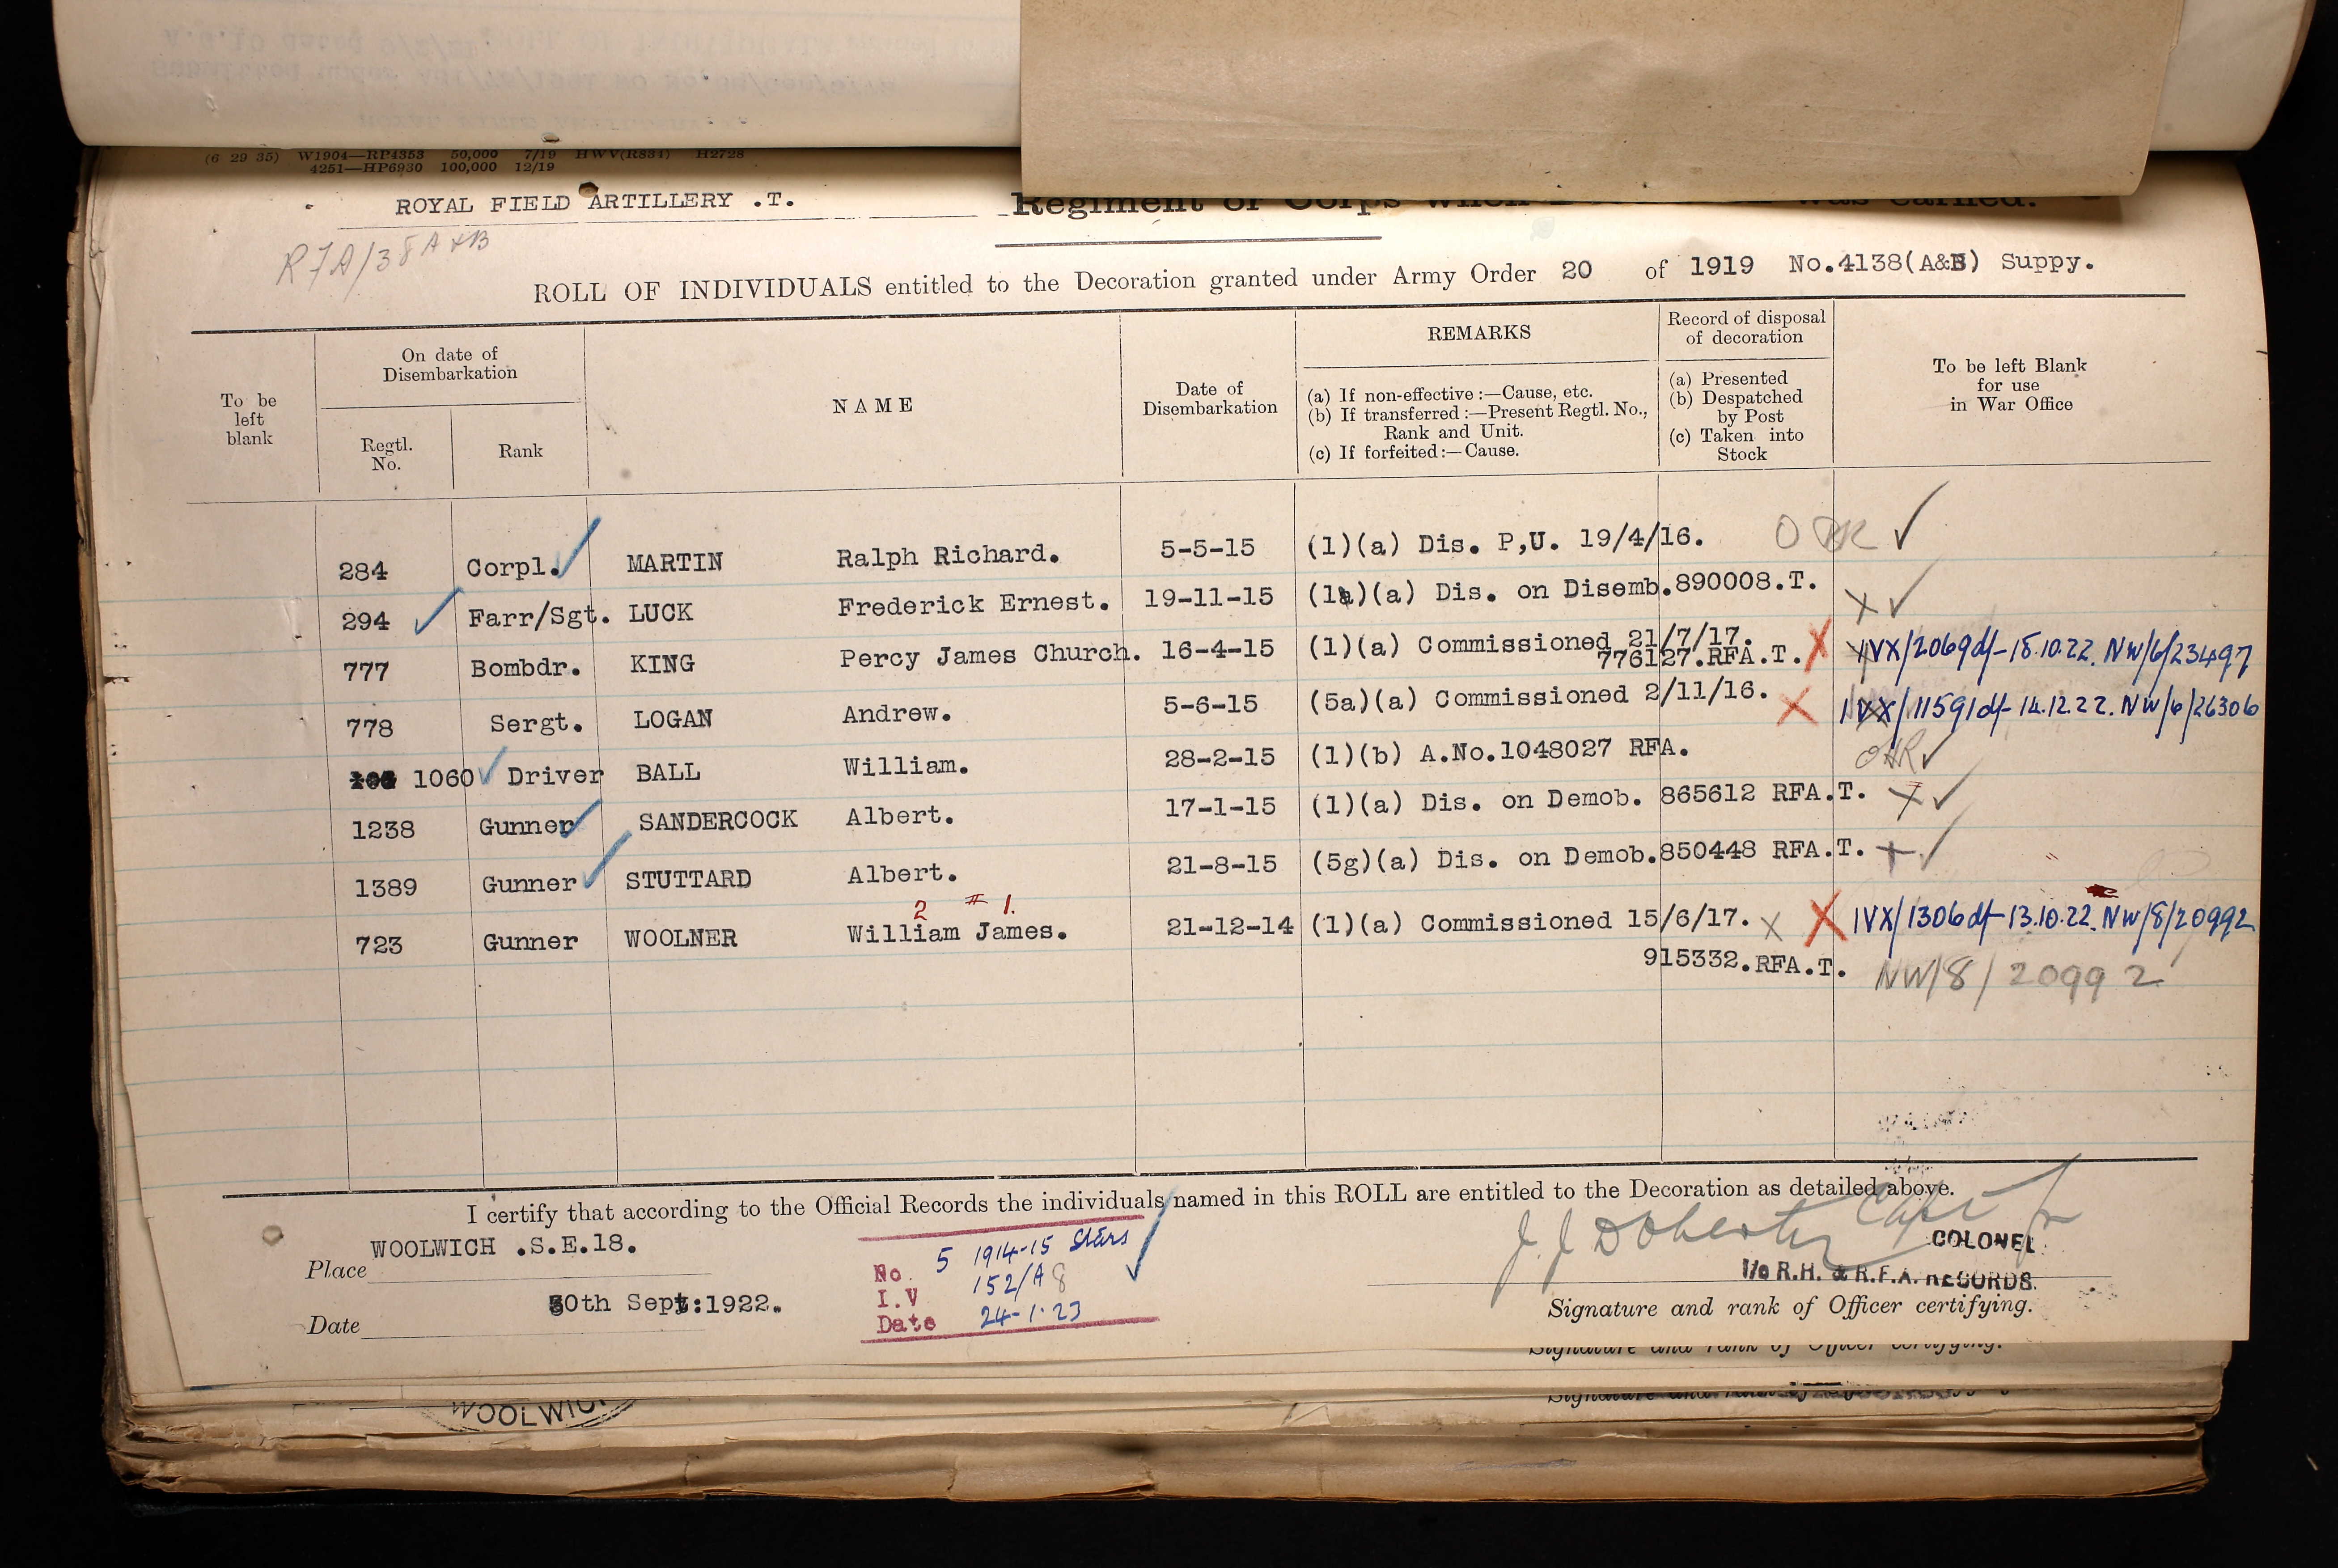 (6 29 35) W1904—RP4353 50,000 7/19 HWV(R834) H2728
4251—HP6930 100,000 12/19
ROYAL FIELD ARTILLERY .T. Regiment or Corps when was earned.
RFA/38 A & B
ROLL OF INDIVIDUALS entitled to the Decoration granted under Army Order 20 of 1919 No.4138(A&B) Suppy.
To be left blank
On date of Disembarkation
Regtl. No.
Rank
NAME
Date of Disembarkation
REMARKS
(a) If non-effective :—Cause, etc.
(b) If transferred :—Present Regtl. No., Rank and Unit.
(c) If forfeited :—Cause.
Record of disposal of decoration
(a) Presented
(b) Despatched by Post
(c) Taken into Stock
To be left Blank for use in War Office
284 Corpl. MARTIN Ralph Richard. 5-5-15 (1)(a) Dis. P,U. 19/4/16.
294 Farr/Sgt. LUCK Frederick Ernest. 19-11-15 (1a)(a) Dis. on Disemb.890008.T. X
777 Bombdr. KING Percy James Church. 16-4-15 (1)(a) Commissioned 21/7/17. X IVX/2069df-18.10.22. NW/6/23497
776127.RFA.T.
778 Sergt. LOGAN Andrew. 5-6-15 (5a)(a) Commissioned 2/11/16. X IVX/11591df-14.12.22. NW/6/26306
1060 Driver BALL William. 28-2-15 (1)(b) A.No.1048027 RFA.
1238 Gunner SANDERCOCK Albert. 17-1-15 (1)(a) Dis. on Demob. 865612 RFA.T. X
1389 Gunner STUTTARD Albert. 21-8-15 (5g)(a) Dis. on Demob.850448 RFA.T. X
2 1.
723 Gunner WOOLNER William James. 21-12-14 (1)(a) Commissioned 15/6/17. X X IVX/1306df-13.10.22. NW/8/20992
915332.RFA.T. NW/8/20992
I certify that according to the Official Records the individuals named in this ROLL are entitled to the Decoration as detailed above.
Place WOOLWICH .S.E.18.
Date 30th Sept:1922.
No. 5 1914-15 Stars
I.V 152/A8
Date 24-1-23
J. J Doherty Capt
COLONEL
I/c R.H. & R.F.A. RECORDS.
Signature and rank of Officer certifying.
Signature and rank of Officer certifying.
Signature and rank of
WOOLWICH